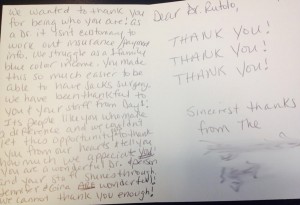 We wanted to thank you
for being who you are! as
a Dr. it isn't customary to
work out insurance/payment
info. We struggle as a family
blue color income. You made
this so much easier to be
able to have Jacks surgery.
we have been thankful to
you & your staff from Day 1!
Its people like you who make
a difference and wouldn't
let this opportunity to thank
you from our hearts & tell you
how much we appreciate you!
You are a wonderful Dr. & person
and your staff shines through
Jennifer & Gina are wonderful!
We cannot thank you enough!
Dear Dr. Rutolo,
THANK YOU!
THANK YOU!
THANK YOU!
Sincerest thanks
from The